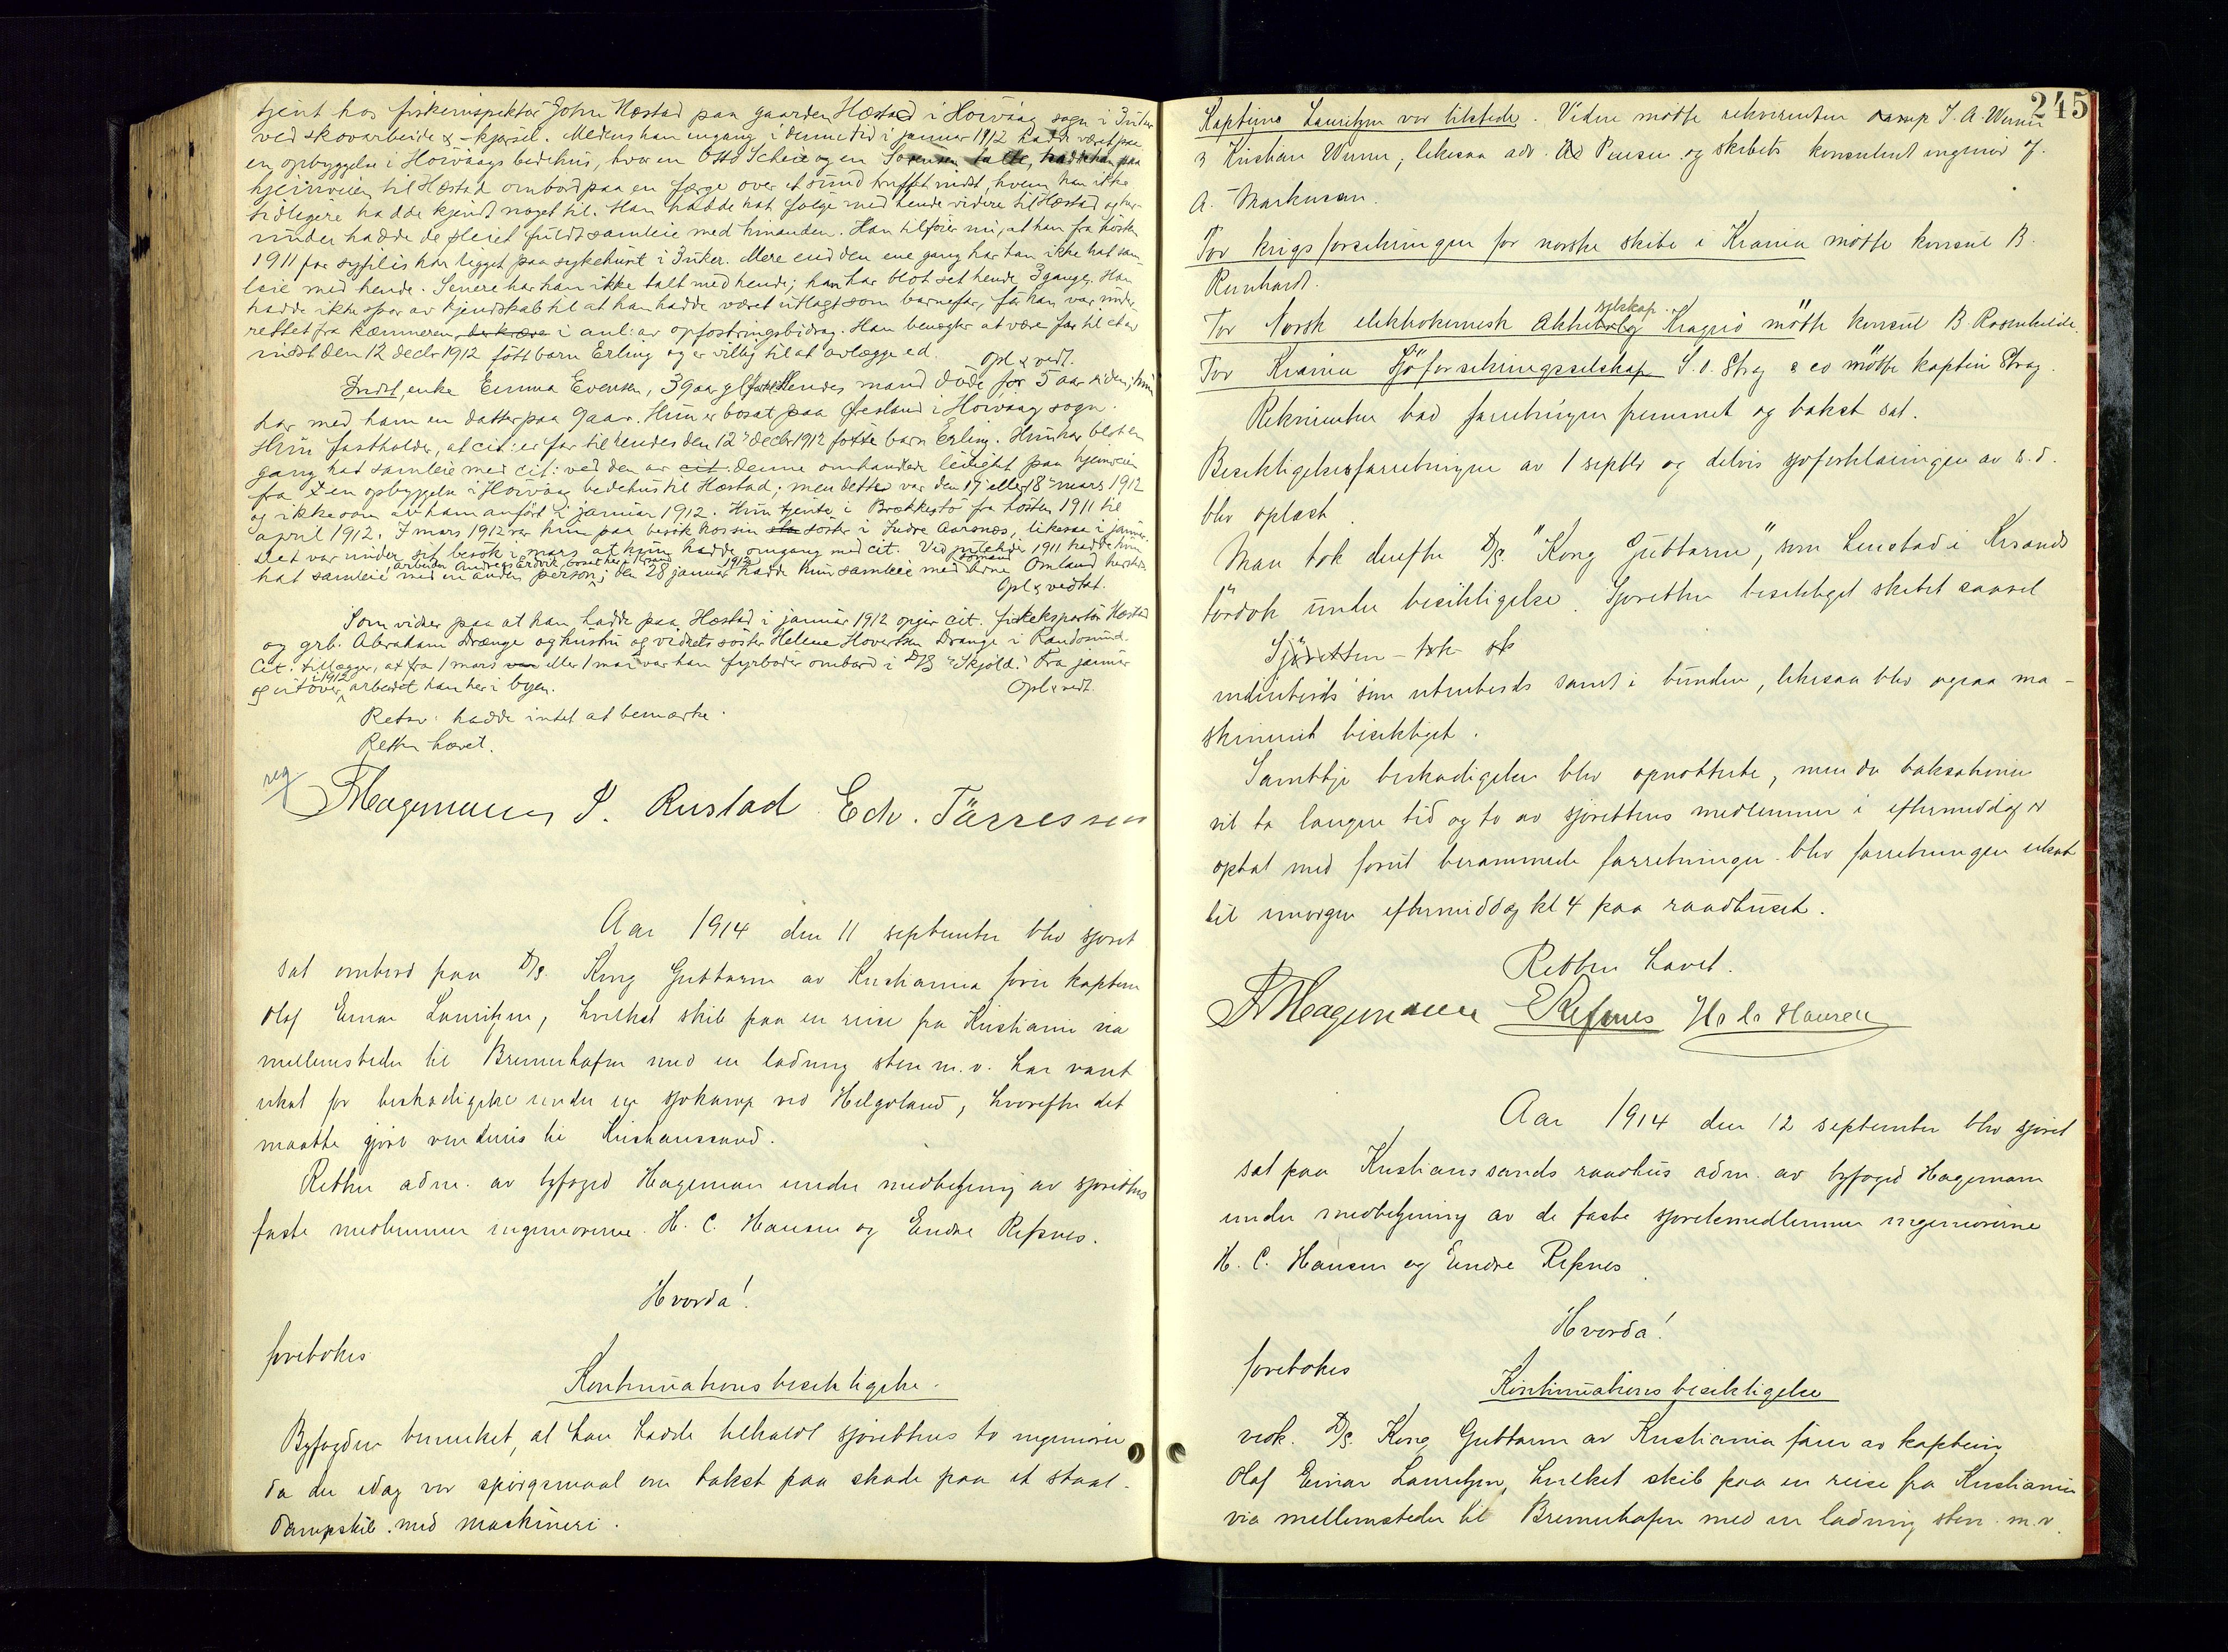 tjent hos fiskeinspektør John Hæstad paa gaarden Hæstad i Höivåag sogn i
ved skovarbeide & -kjørsel. Medens han engang i denne tid i januar 1912 hadde været paa
en opbyggelse i Höivåags bedehus, hvor en Otto Scheie og en Sørensen talte, hadde han paa
hjemveien til Hæstad ombord paa en færge over et sund truffet indst, hvem han ikke
tidligere hadde kjendt noget til. Han hadde hat følge med hende videre til Hæstad og
under hadde de pleiet fuldt samleie med hinanden. Han tilføier nu, at han fra høsten
1911 for syfilis har ligget paa sykehuset i Mere end den ene gang har han ikke hat sam-
leie med hende. Senere har han ikke talt med hende; han har blot set hende 3 gange. Han
hadde ikke spor av kjendskab til at han hadde været utlagt som barnefar, før han var under-
rettet fra kæmneren i anl: av opfostringsbidrag. Han benegter at være far til et av
indst den 12 decbr 1912 født barn Erling og er villig til at avlægge ed. Opl & vedt.
Indst, enke Emma Evensen, 39 aar gl. Hendes mand døde for 5 aar siden; hun
har med ham en datter paa 9 aar. Hun er bosat paa Øresland i Höivåag sogn.
Hun fastholder, at cit: er far til hendes den 12' decbr 1912 fødte barn Erling. Hun har blot en
gang hat samleie med cit: ved den av cit. denne omhandlede leilighet paa hjemveien
fra en opbyggelse i Höivåag bedehus til Hæstad; men dette var den 17' eller 18' mars 1912
og ikke som av ham anført i januar 1912. Hun tjente i Brækkestø fra høsten 1911 til
april 1912. I mars 1912 var hun paa besøk hos sin søster i Indre Aarsnes, likesaa i januar.
Det var under sit besøk i mars at hun hadde omgang med cit. Ved juletider 1911 hadde hun
hat samleie med en anden person, arbeider Andreas bosat her i Krsand; den 28 januar 1912 hadde hun samleie med Arne Omland
Opl & vedtat.
Som vidner paa at han hadde paa Hæstad i januar 1912 opgir cit. fiskeksportør Hæstad
og grb. Abraham Drange og hustru og vidnets søster Helene Hovertsen Drange i Randøsund.
Cit. tillægger, at fra 1 mars eller 1 mai var han fyrbøder ombord i D/S "Skjold." Fra januar
og utover i 1912 arbeidet han her i byen. Opl & vedt.
Retsv: hadde intet at bemærke.
Retten hævet.
reg
FHagemann P. Rustad Edv. Tärressen
Aar 1914 den 11 september blev sjøret
sat ombord paa D/S. Kong Guttorm av Kristiania fører kaptein
Olaf Einar Lauritzen, hvilket skib paa en reise fra Kristiania via
mellemsteder til Bremerhafen med en ladning sten m.v. har været
utsat for beskadigelse under en sjøkamp ved Helgoland, hvorefter det
maatte gjøre vendereis til Kristianssand.
Retten adm. av byfoged Hageman under medbetjening av sjørettens
faste medlemmer ingeniørerne H. C. Hansen og Endre Refsnes.
Hvorda!
foretokes
Kontinuationsbesiktigelse.
Byfogden bemerket, at han hadde tilkaldt sjørettens to ingeniører
da der idag var spørgsmaal om takst paa skade paa et staal-
dampskib med maskineri.
245
Kaptein Lauritzen var tilstede. Videre møtte rekvirenten T. A. Werner
Kristian Werner, likesaa adv. og skibets konsulent ingeniør
A. Markussen.
For krigsforsikringen for norske skibe i Krania møtte konsul B.
Reinhardt.
For Norsk elektrokemisk Aktieselskap Kragerø møtte konsul B. Rosenkilde.
For Krania Sjøforsikringsselskap S. O. Stray & co møtte kaptein Stray.
Rekvirenten bad forretningen fremmet og takst sat.
Besiktigelsesforretningen av 1 septbr og delvis sjøforklaringen av s.d.
blev oplæst.
Man tok derefter D/S. "Kong Guttorm", som henstod i Krsands
tørdok under besiktigelse. Sjøretten besiktiget skibet saavel
Sjøretten tok
indenbords som utenbords samt i bunden, likesaa blev ogsaa ma-
skineriet besiktiget.
Samtlige beskadigelser blev opnotterte, men da taksationen
vil ta længre tid og to av sjørettens medlemmer i eftermiddag er
optat med forut berammede forretninger blev forretningen utsat
til imorgen eftermiddag kl 4 paa raadhuset.
Retten hævet.
FHagemann ERefsnes H. C. Hansen
Aar 1914 den 12 september blev sjøret
sat paa Kristianssands raadhus adm. av byfoged Hagemann
under medbetjening av de faste sjøretsmedlemmer ingeniørerne
H. C. Hansen og Endre Refsnes.
Hvorda!
foretokes
Kontinuations besiktigelse
vedk. D/S. Kong Guttorm av Kristiania fører av kaptein
Olaf Einar Lauritzen, hvilket skib paa en reise fra Kristiania
via mellemsteder til Bremerhafen med en ladning sten m.v.